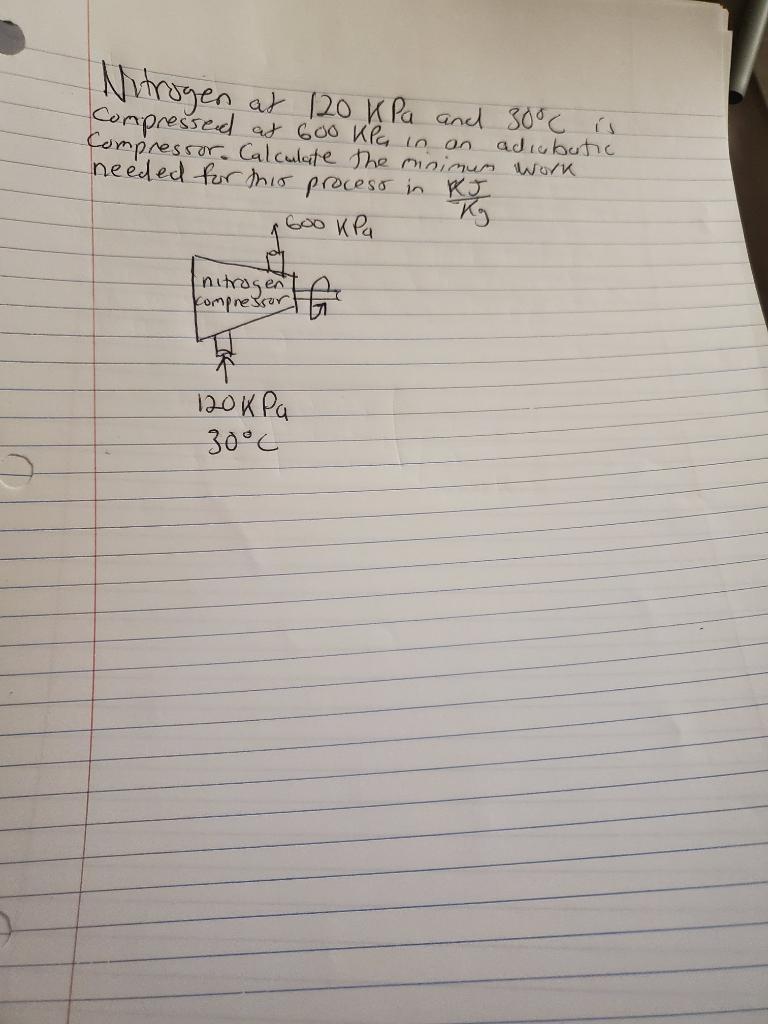 Nitrogen at 120 KPa and 30°C is
compressed at 600 KPa in an adiabatic
compressor. Calculate the minimum work
needed for this process in KJ/Kg
600 KPa
nitrogen
compressor
120 KPa
30°C